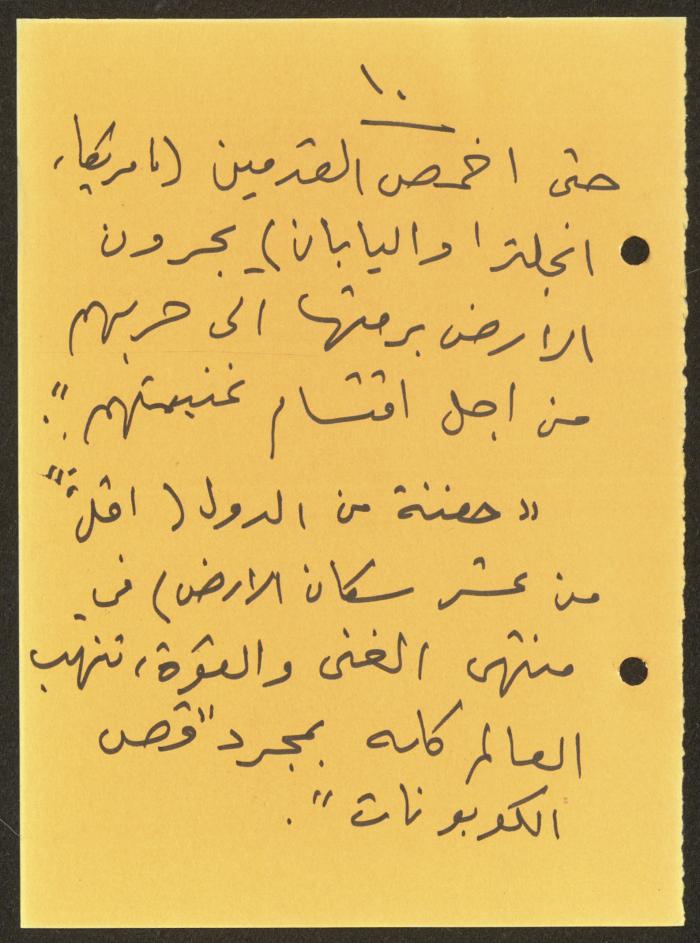 ١٠
حتى اخمص القدمين (امريكا،
انجلترا واليابان) يجرون
الأرض برمتها الى حربهم
من اجل اقتسام غنيمتهم".
"حفنة من الدول (اقل
من عشر سكان الارض) في
منتهى الغنى والقوة، تنهب
العالم كله بمجرد "قص
الكوبونات".